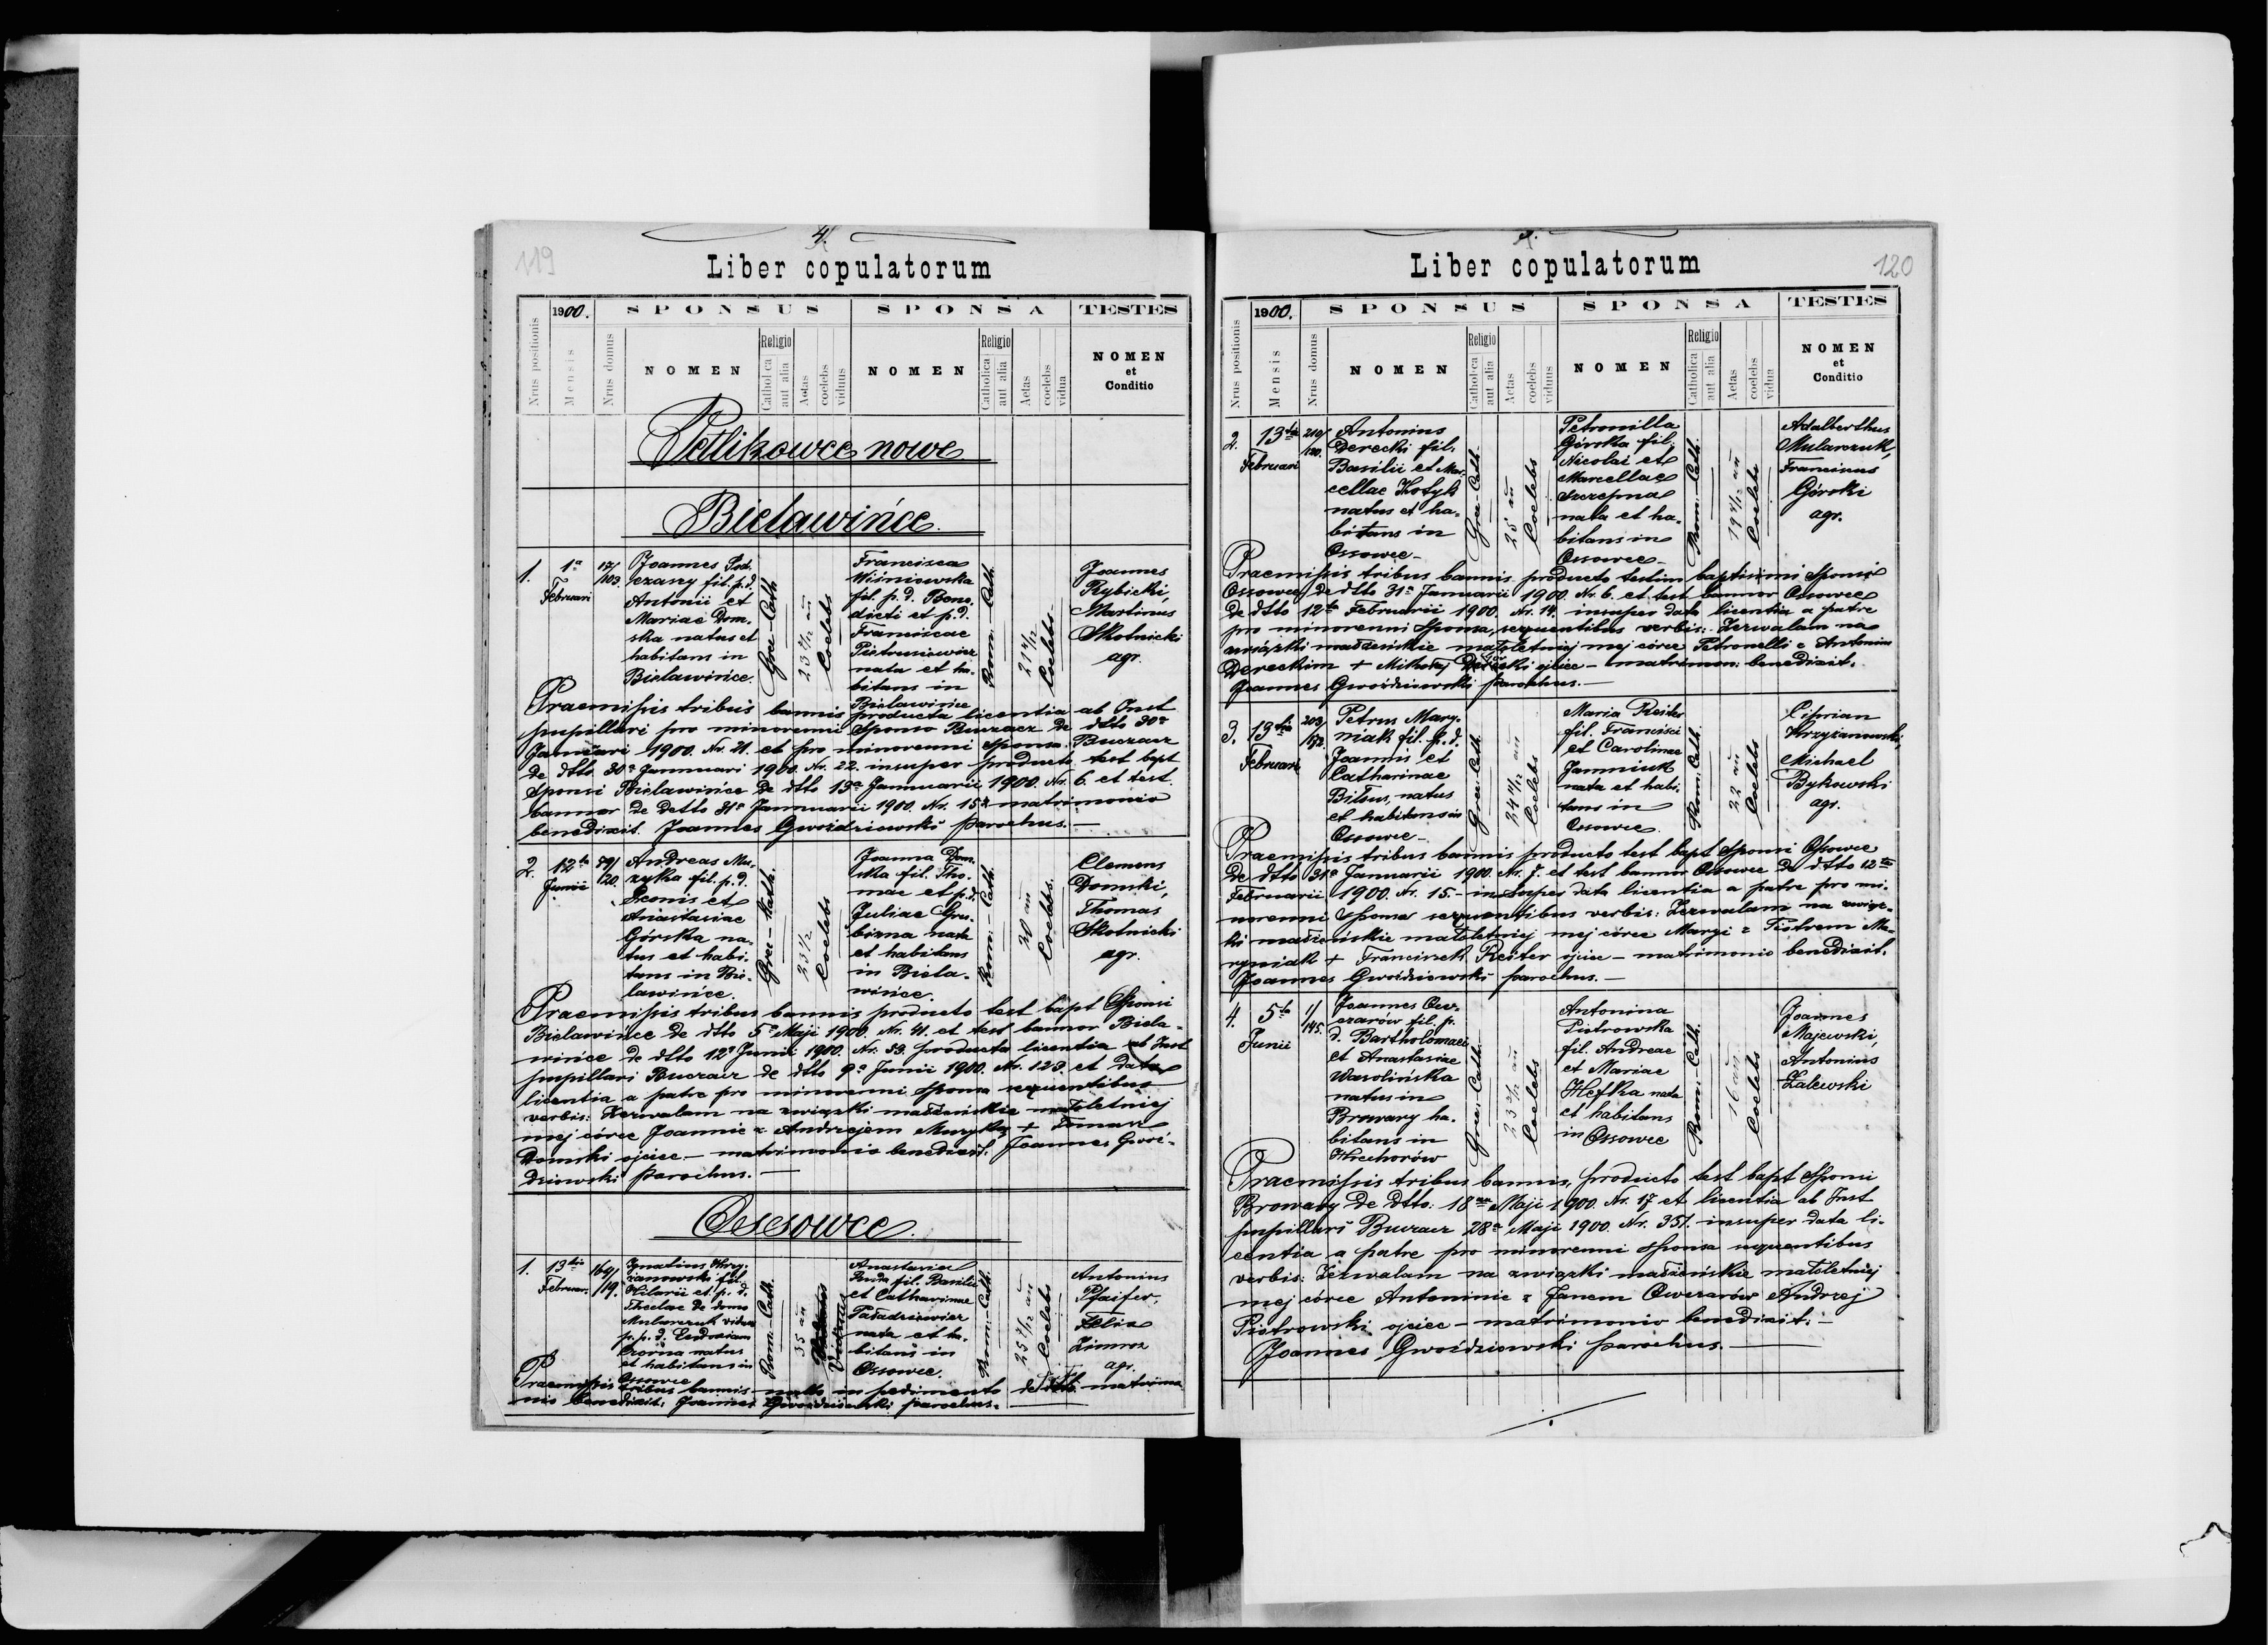 119
4.
Liber copulatorum
Nrus positionis
1900.
Mensis
Nrus domus
SPONSUS
NOMEN
Religio
Catholica
aut alia
Aetas
coelebs
viduus
SPONSA
NOMEN
Religio
Catholica
aut alia
Aetas
coelebs
vidua
TESTES
NOMEN
et
Conditio
Petlikowce nowe
Bielawińce
1.
1a
Februari
17/
103.
Joannes Pod-
czasry fil. p.d.
Antonii et
Mariae Dom-
ska natus et
habitans in
Bielawińce.
Grec-Cath
23 an
Coelebs
Francisca
Wiśniewska
fil. p. d. Bene-
dicti et p.d.
Franciscae
Pietrusiewicz
nata et ha-
bitans in
Bielawińce
Rom:-Cath.
21
Coelebs.
Joannes
Rybicki,
Martinus
Skotnicki
agr.
Praemissis tribus bannis producta licentia ab Inst
pupillari pro minorenni Sponso Buczacz de dtto 30a
Januari 1900. Nr. 21. et pro minorenni Sponsa Buczacz
de dtto. 30a Jannuari 1900. Nr. 22. insuper producto test bapt
Sponsi Bielawińce de dtto 13a Jannuarii 1900. Nr. 6. et test.
bannor de detto 31a Jannuarii 1900. Nr. 15 matrimonio
benedixit. Joannes Gwoździowski parochus.—
2.
12ta
Junii
79/
20.
Andreas Mu-
zyka fil. p.d.
Leonis et
Anastasiae
Górska na-
tus et habi-
tans in Bie-
lawińce.
Grec-Kath.
23 1/2
Coelebs
Joanna Dom-
ska fil. Tho-
mae et p.d.
Juliae Gra-
bizna nata
et habitans
in Biela-
wińce.
Rom:-Cath.
20 an
Coelebs.
Clemens
Domski,
Thomas
Skotnicki
agr.
Praemissis tribus bannis producto test bapt Sponsi
Bielawińce de dtto 5a Maji 1900. Nr. 41. et test bannor Biela-
wińce de dtto 12a Junii 1900. Nr. 53. producta licentia ab Inst
pupillari Buczacz de dtto 9a Junii 1900. Nr. 123. et data
licentia a patre pro minorenni Sponsa sequentibus
verbis: Zezwalam na związki małżeńskie małoletniej
mej córce Joannie z Andrzejem Muzyką + Tomasz
Domski ojciec — matrimonio benedixit. Joannes Gwoź-
dziowski parochus.—
Ossowce.
1.
13tia
Februar.
164/
119.
Ignatius Krzy-
żanowski fil.
Hilarii et p. d.
Theclae de domo
Mularczuk viduus
p. p. d. Eudoxiam
natus
et habitans in
Ossowce
Rom-Cath.
35 an
Viduus
Anastasia
fil. Basilii
et Catharinae
nata et ha-
bitans in
Ossowce.
Rom:-Cath.
25 an
Coelebs
Antonius
Pfaifer,
Felix
Zimroz
agr.
Praemissis tribus bannis nullo impedimento detecto matrimo-
nio benedixit: Joannes Gwoździowski parochus.
120
Liber copulatorum
Nrus positionis
1900.
Mensis
Nrus domus
SPONSUS
NOMEN
Religio
Catholica
aut alia
Aetas
coelebs
viduus
SPONSA
NOMEN
Religio
Catholica
aut alia
Aetas
coelebs
vidua
TESTES
NOMEN
et
Conditio
2.
13tia
Februari
210/
120.
Antonius
Derecki fil.
Basilii et Mar-
cellae Kotyk
natus et ha-
bitans in
Ossowce—
Gre:-Cath.
25 an
Coelebs
Petronilla
Górska fil.
Nicolai et
Marcellae
Szczepna
nata et ha-
bitans in
Ossowce—
Rom:-Cath.
19 an
Coelebs
Adalberthus
Mularczuk,
Francinus
Górski
agr.
Praemissis tribus bannis producto testim baptismi Sponsi
Ossowce de dtto 31a Januarii 1900. Nr. 6. et test bannor Ossowce
de dtto 12ta Februarii 1900. Nr. 14. insuper data licentia a patre
pro minorenni Sponsa, sequentibus verbis: Zezwalam na
związki małżeńskie małoletniej mej córce Petronelli z Antonim
Dereckim + Mikołaj ojciec — matrimon: benedixit.
Joannes Gwoździowski parochus.—
3.
13tia
Februari
203/
172.
Petrus Mary-
niak fil. p.d.
Joannis et
Catharinae
Bitsus, natus
et habitans in
Ossowce—
Grec-Cath.
24 an
Coelebs
Maria Reiter
fil. Francisci
et Carolinae
Jamniuk
nata et habi-
tans in
Ossowce.
Rom:-Cath.
22 an
Coelebs
Ciprian
Krzyżanowski,
Michael
Bykowski
agr.
Praemissis tribus bannis producto test bapt Sponsi Ossowce
de dtto 31a Januarii 1900. Nr. 7. et test bannor Ossowce de dtto 12ta
Februarii 1900. Nr. 15.— insuper data licentia a patre pro mi-
norenni Sponsa sequentibus verbis: Zezwalam na związ-
ki małżeńskie małoletniej mej córce Maryi z Piotrem Ma-
ryniak + Franciszek Reiter ojciec — matrimonio benedixit.
Joannes Gwoździowski parochus.—
4.
5ta
Junii
1/
145.
Joannes Owe-
czarów fil. p.
d. Bartholomaei
et Anastasiae
Wasolińska
natus in
Browary ha-
bitans in
Krechorów
Grec-Cath.
23 an
Coelebs
Antonina
Piotrowska
fil. Andreae
et Mariae
Hefka nata
et habitans
in Ossowce
Rom:-Cath.
16 an
Coelebs
Joannes
Majewski,
Antonius
Zalewski
Praemissis tribus bannis, producto test bapt Sponsi
Browary de dtto: 18va Maji 1900. Nr. 17 et licentia ab Inst
pupillari Buczacz 28a Maji 1900. Nr. 351. insuper data li-
centia a patre pro minorenni Sponsa sequentibus
verbis: Zezwalam na związki małżeńskie małoletniej
mej córce Antoninie z Janem Oweczarów Andrzej
Piotrowski ojciec — matrimonio benedixit:—
Joannes Gwoździowski parochus.—